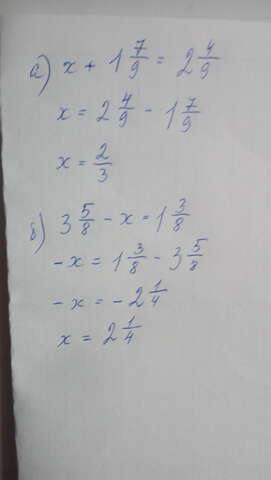 а) x + 1 7/9 = 2 4/9
x = 2 4/9 - 1 7/9
x = 2/3
б) 3 5/8 - x = 1 3/8
-x = 1 3/8 - 3 5/8
-x = -2 1/4
x = 2 1/4